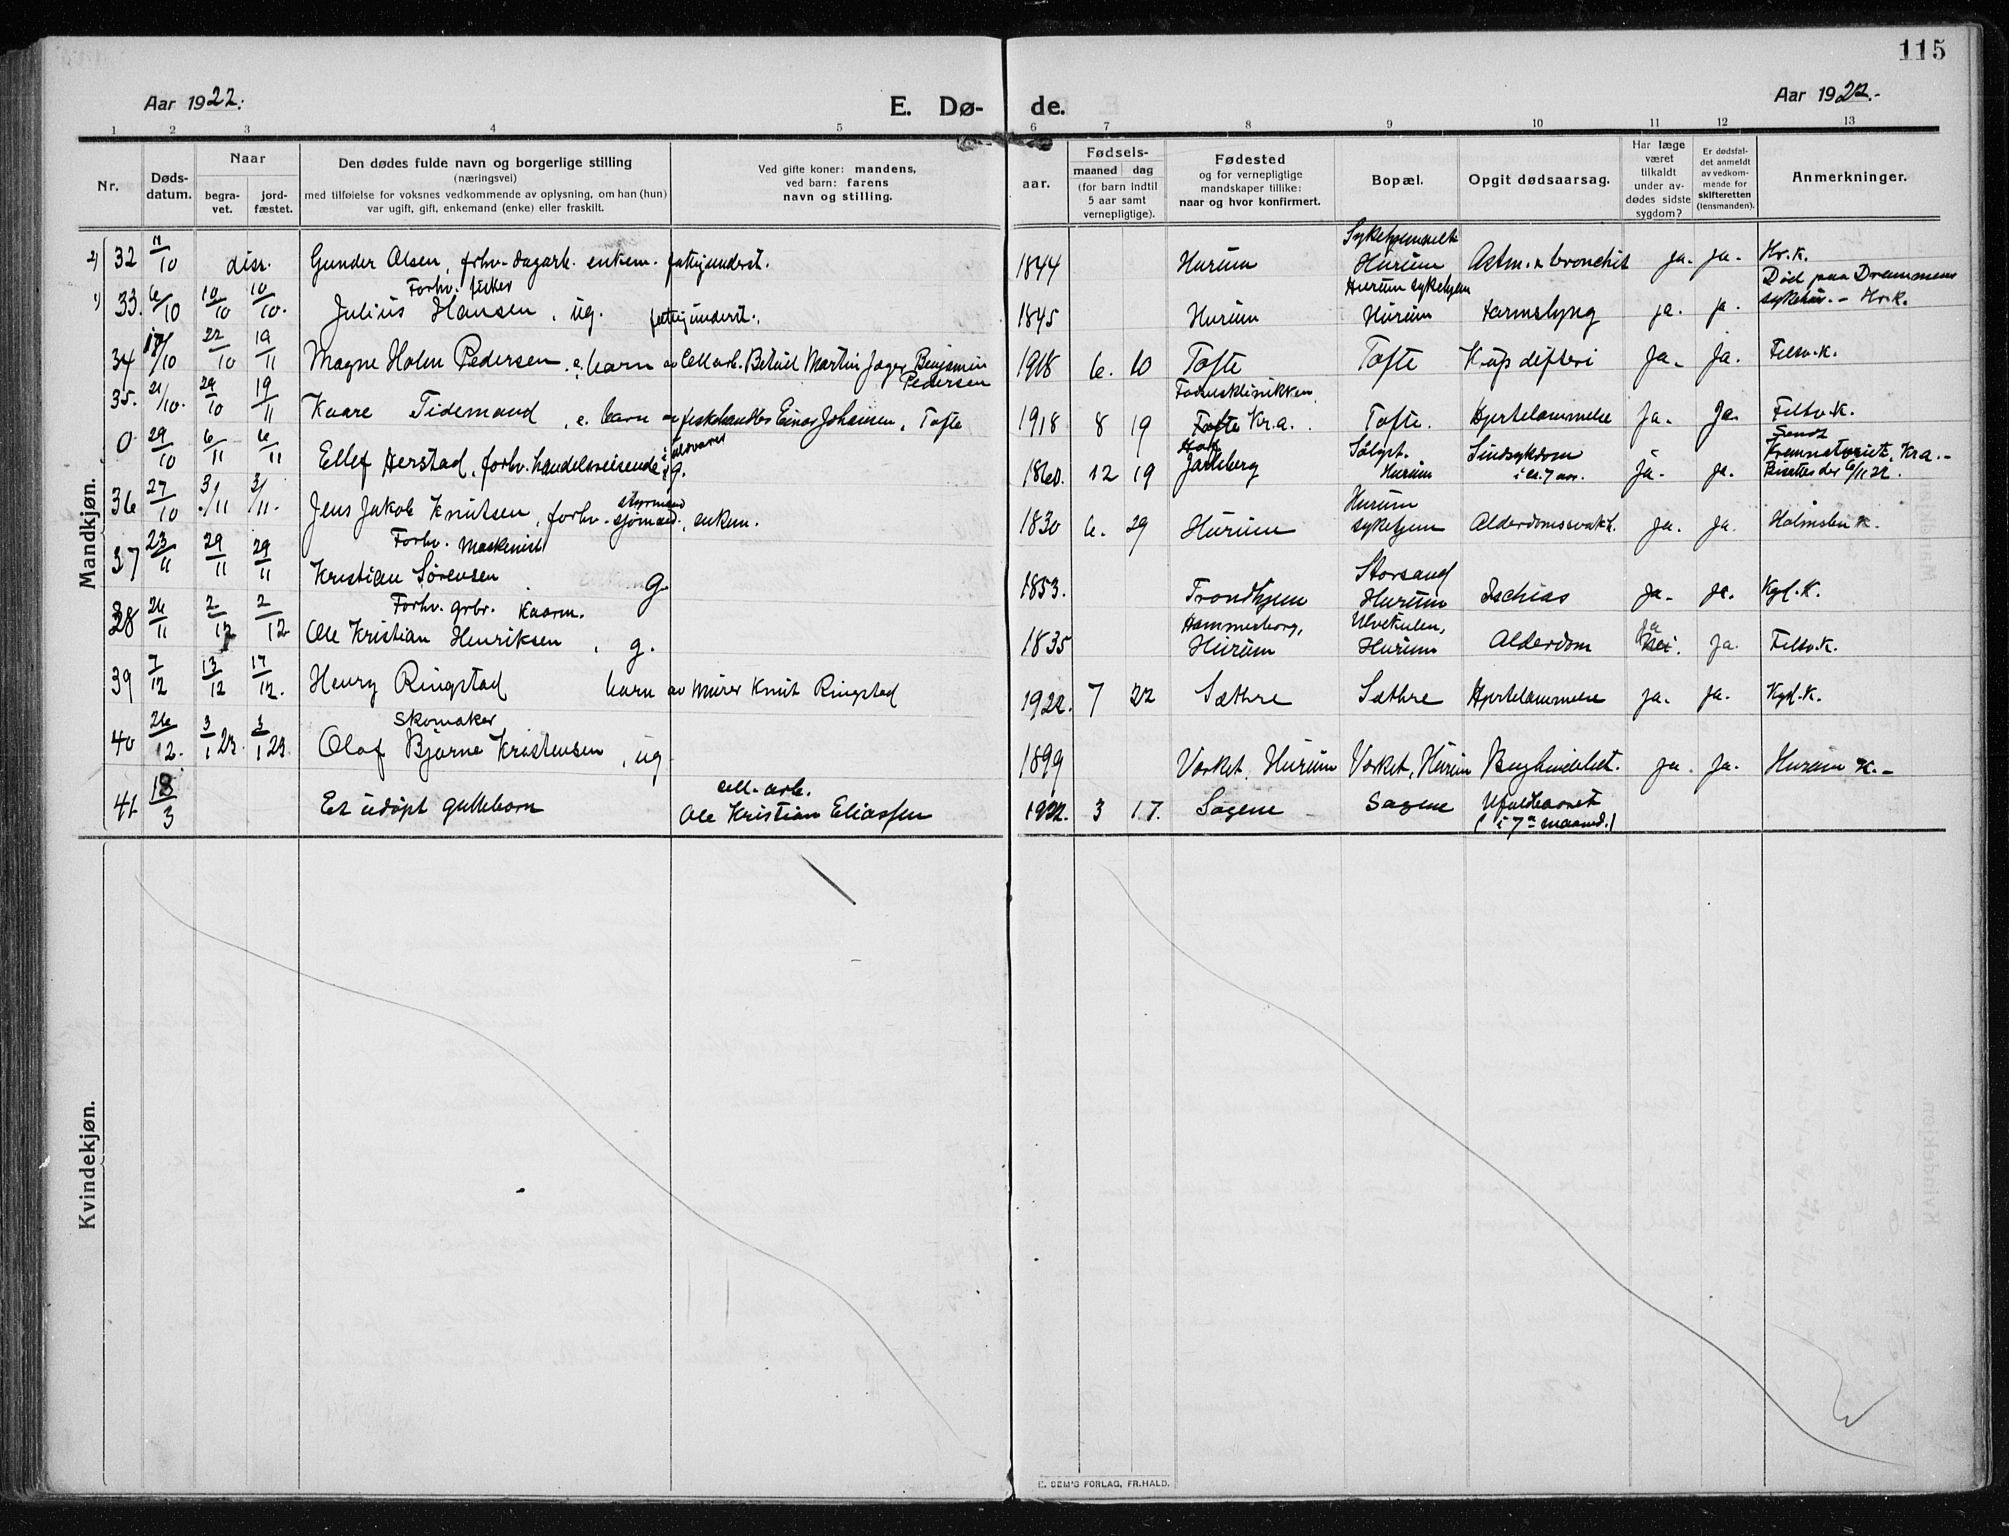 115
Aar 1922.
E. Dø- de.
Aar 1922.
1 2 3 4 5 6 7 8 9 10 11 12 13
Nr.
Døds-
datum.
Naar
begra-
vet.
jord-
fæstet.
Den dødes fulde navn og borgerlige stilling
(næringsvei)
med tilføielse for voksnes vedkommende av oplysning, om han (hun)
var ugift, gift, enkemand (enke) eller fraskilt.
Ved gifte koner: mandens,
ved barn: farens
navn og stilling.
Fødsels-
aar.
maaned dag
(for barn indtil
5 aar samt
vernepligtige).
Fødested
og for vernepligtige
mandskaper tillike:
naar og hvor konfirmert.
Bopæl.
Opgit dødsaarsag.
Har læge
været
tilkaldt
under av-
dødes sidste
sygdom?
Er dødsfal-
det anmeldt
av vedkom-
mende for
skifteretten
(lensmanden).
Anmerkninger.
Mandkjøn.
2) 32 11/10 disr. Gunder Olsen, forhv. dagarb. enkem. fattigunderst. 1844 Hurum Sykehjemmet Hurum Astm. & bronchit ja. ja. Hr. K.
1) 33. 6/10 10/10 10/10. Forhv. fisker Julius Hansen, ug. fattigunderst. 1845 Hurum Hurum sykehjem Hurum Tarmslyng ja. ja. Død paa Drammens sykehus. - Hr. K.
34 17/10 22/10 19/11 Magne Holm Pedersen, e. barn av Cell.arb. Betuel Martin Jæger Benjamin Pedersen 1918 6. 10 Tofte Tofte Krup difteri Ja. Ja. Filtv. K.
35. 21/10. 29/10 19/11 Kaare Tidemand, e. barn av fiskehandler Einar Johansen, Tofte 1918 8 19 Fødselsklinikken Tofte Kr.a. Tofte. Hjertelammelse Ja. Ja. Filtv. K.
0 29/10 6/11 6/11 Ellef Herstad, forhv. handelsreisende g. 1860. 12 19 Hof Jarlsberg Sølyst. Hurum Sindsykdom i ca. 7 aar. Ja. ja. Sendt Krematoriet, Kr.a. - Bisattes der 6/11 22.
36 27/10 3/11 3/11. Jens Jakob Knutsen, forhv. styrmand sjømand, enkem. 1830 6. 29 Hurum Hurum sykehjem Alderdomssvakh. ja. ja. Holmsbu K.
37 23/11 29/11 29/11 Forhv. Maskinist Kristian Sørensen g. 1853. Trondhjem Storsand Hurum Ischias ja. ja. Kgl. K.
38 26/11 2/12 2/12 Forhv. grbr. Kaarm. Ole Kristian Henriksen, g. 1835 Hammersborg, Hurum Ulvekulen, Hurum Alderdom ja Nei. ja. Filtv. K.
39 7/12 13/12 17/12. Henry Ringstad barn av Murer Knut Ringstad 1922. 7 22 Sæthre Sæthre Hjertelammelse ja. ja. Kgl. K.
40 26/12. 3/1 23. 3/1 23. Skomaker Olaf Bjarne Kristensen, ug. 1899 Verket, Hurum Verket, Hurum Bughindebet. ja. ja. Hurum K. -
41 18/3 Et udøpt guttebarn cell. arb. Ole Kristian Eliassen 1922. 3 17. Sagene Sagene Ufuldbaaret (i 7de maaned.)
Kvindekjøn.
E. SEM'S FORLAG, FR.HALD.